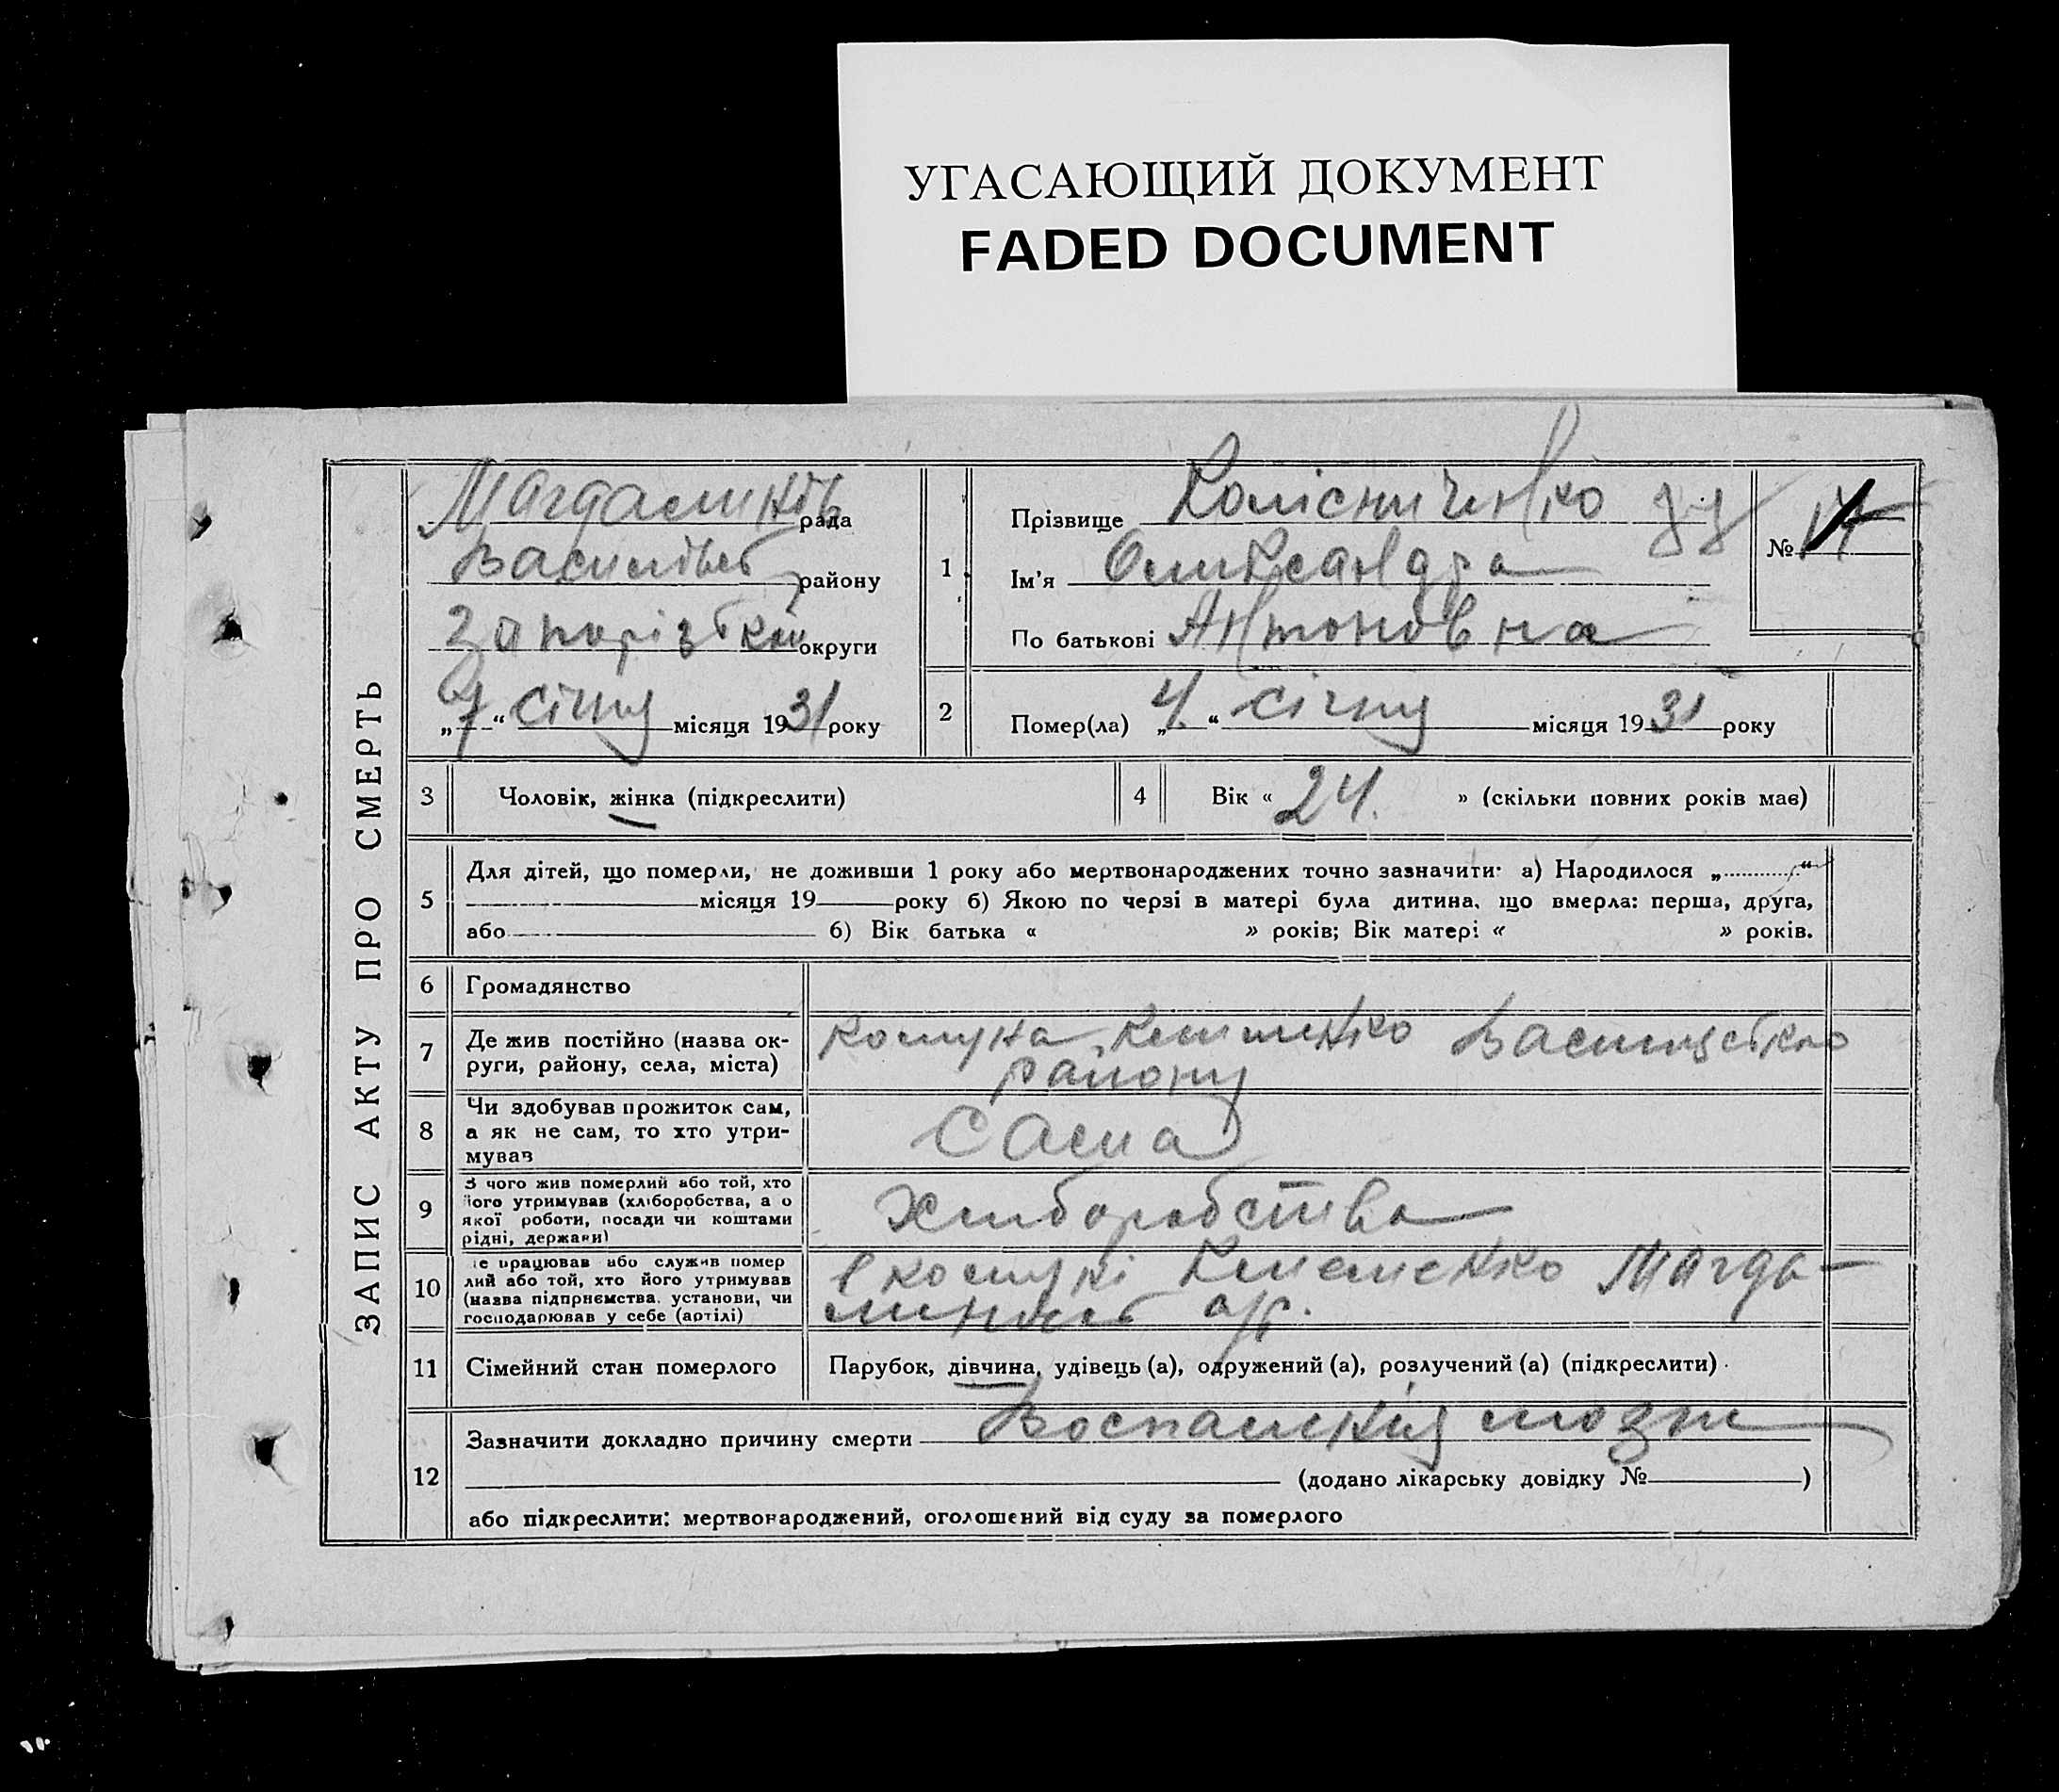 УГАСАЮЩИЙ ДОКУМЕНТ
FADED DOCUMENT
ЗАПИС АКТУ ПРО СМЕРТЬ
Магдалинів рада
Василівськ району
Запорізької округи
„7“ січня місяця 1931 року
1
Прізвище Колісниченко
Ім'я Олександра
По батькові Антоновна
№ 17
2
Помер(ла) „4.“ січня місяця 1931 року
3 Чоловік, жінка (підкреслити)
4 Вік « 24. » (скільки повних років має)
5
Для дітей, що померли, не доживши 1 року або мертвонароджених точно зазначити: а) Народилося „ “
місяця 19 року б) Якою по черзі в матері була дитина, що вмерла: перша, друга,
або б) Вік батька « » років; Вік матері « » років.
6 Громадянство
7
Де жив постійно (назва ок-
руги, району, села, міста)
комуна
району
8
Чи здобував прожиток сам,
а як не сам, то хто утри-
мував
Сама
9
З чого жив померлий або той, хто
його утримував (хліборобства, а о
якої роботи, посади чи коштами
рідні, держави)
Хліборобства
10
е працював або служив помер
лий або той, хто його утримував
(назва підприємства, установи, чи
господарював у себе (артілі)
в комуні Клименко Магда-
11 Сімейний стан померлого
Парубок, дівчина, удівець (а), одружений (а), розлучений (а) (підкреслити)
12
Зазначити докладно причину смерти Воспаления мозги
(додано лікарську довідку № )
або підкреслити: мертвонароджений, оголошений від суду за померлого